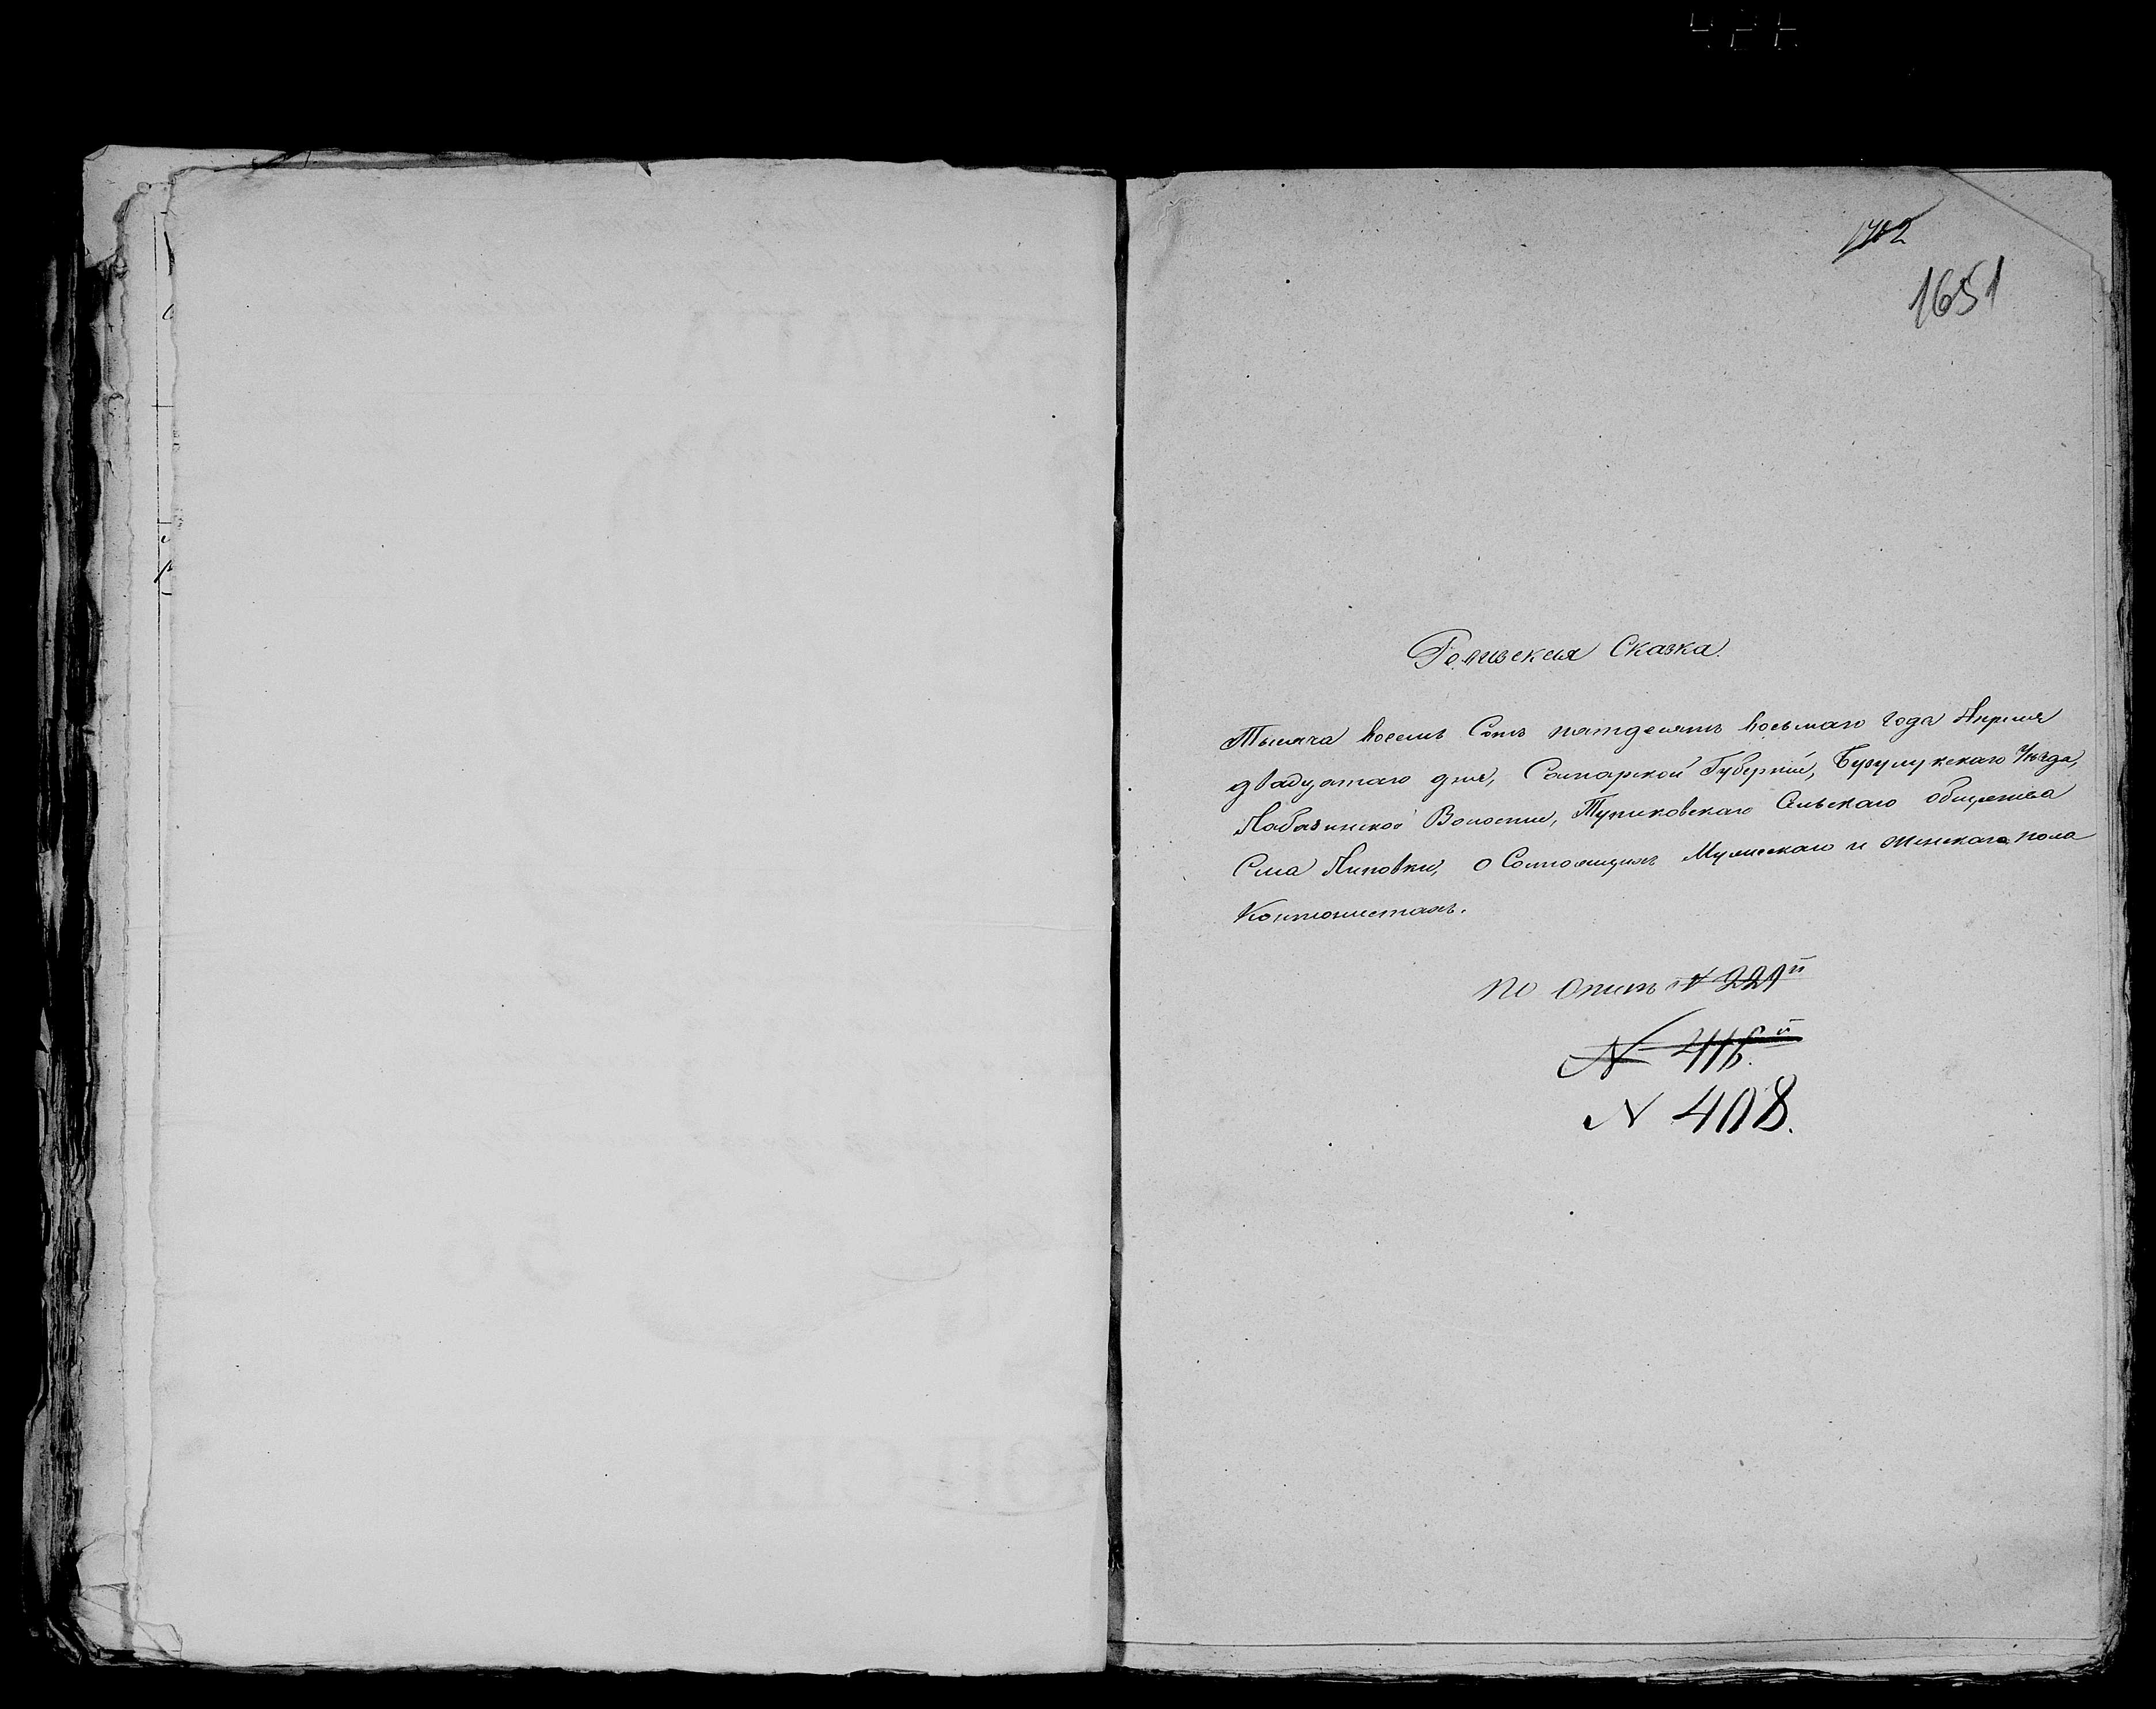 1651
Ревизская Сказка.
Тысяча восемь Сотъ пятдесятъ восьмаго года Апреля
двадцатаго дня, Самарской Губерніи, Бузулукскаго Уѣзда,
Лабазинской Волости, Тупиковскаго Сельскаго общества
Села Липовки, о Состоящихъ Мужескаго и женскаго пола
Кантонистахъ.
По Описи № 221й
№ 416.й
№ 408.